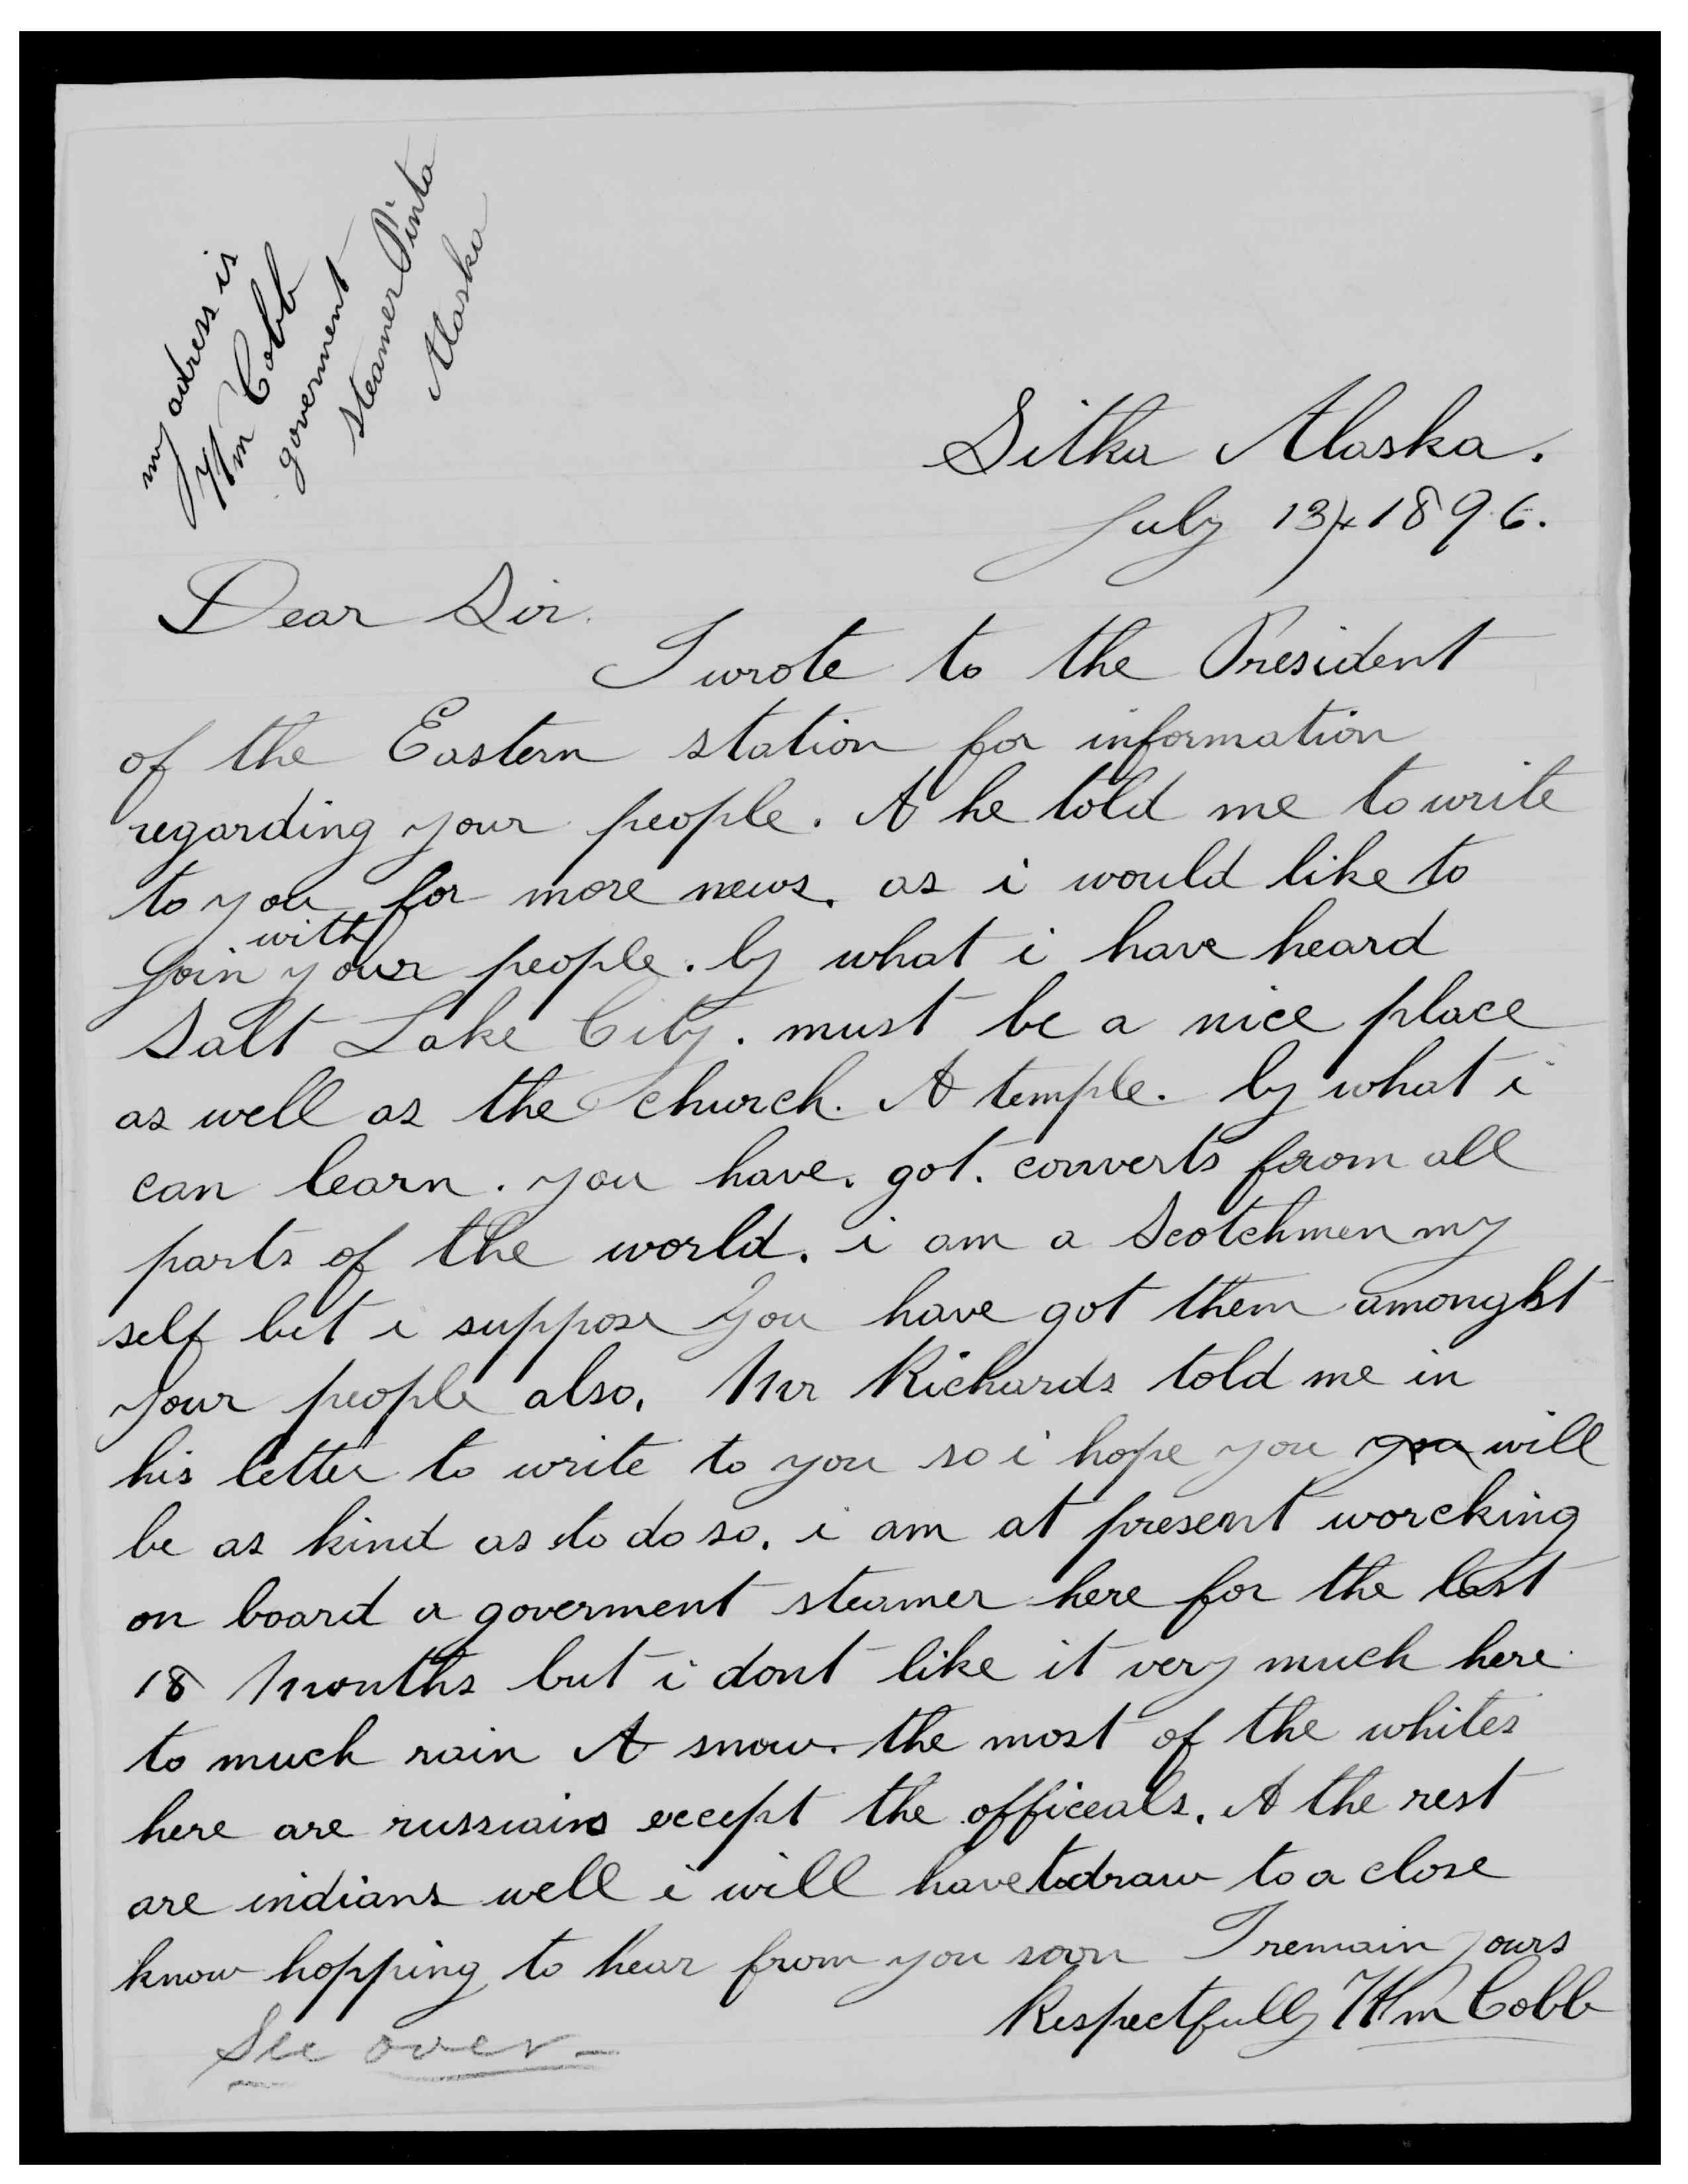 my adress is
Wm Cobb
government
steamer Pinta
Alaska
Sitka Alaska.
July 13/ 1896.
Dear Sir.
I wrote to the President
of the Eastern station for information
regarding your people. & he told me to write
to you for more news. as i would like to
with
join your people. by what i have heard
Salt Lake City. must be a nice place
as well as the church. & temple. by what i
can learn. you have. got. converts from all
parts of the world. i am a Scotchmen my
self but i suppose you have got them amongbt
your people also. Mr Richards told me in
his letter to write to you so i hope you you will
be as kind as to do so. i am at present worcking
on board a goverment steamer here for the last
18 Months but i dont like it very much here
to much rain & snow. the most of the whites
here are russiains eccept the officeals. & the rest
are indians well i will have to draw to a close
know hopping to hear from you soon I remain yours
Respectfully Wm Cobb
See over-